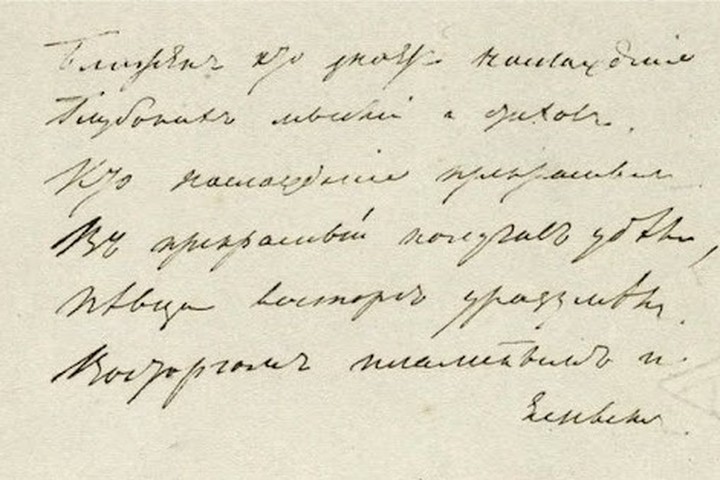 Блаженъ кто знаетъ наслажденіе
Глубокихъ мыслей и стиховъ,
Кто наслажденіе прекраснымъ
Въ прекрасный получилъ удѣлъ,
восторгъ уразумѣлъ
Восторгомъ пламеннымъ и